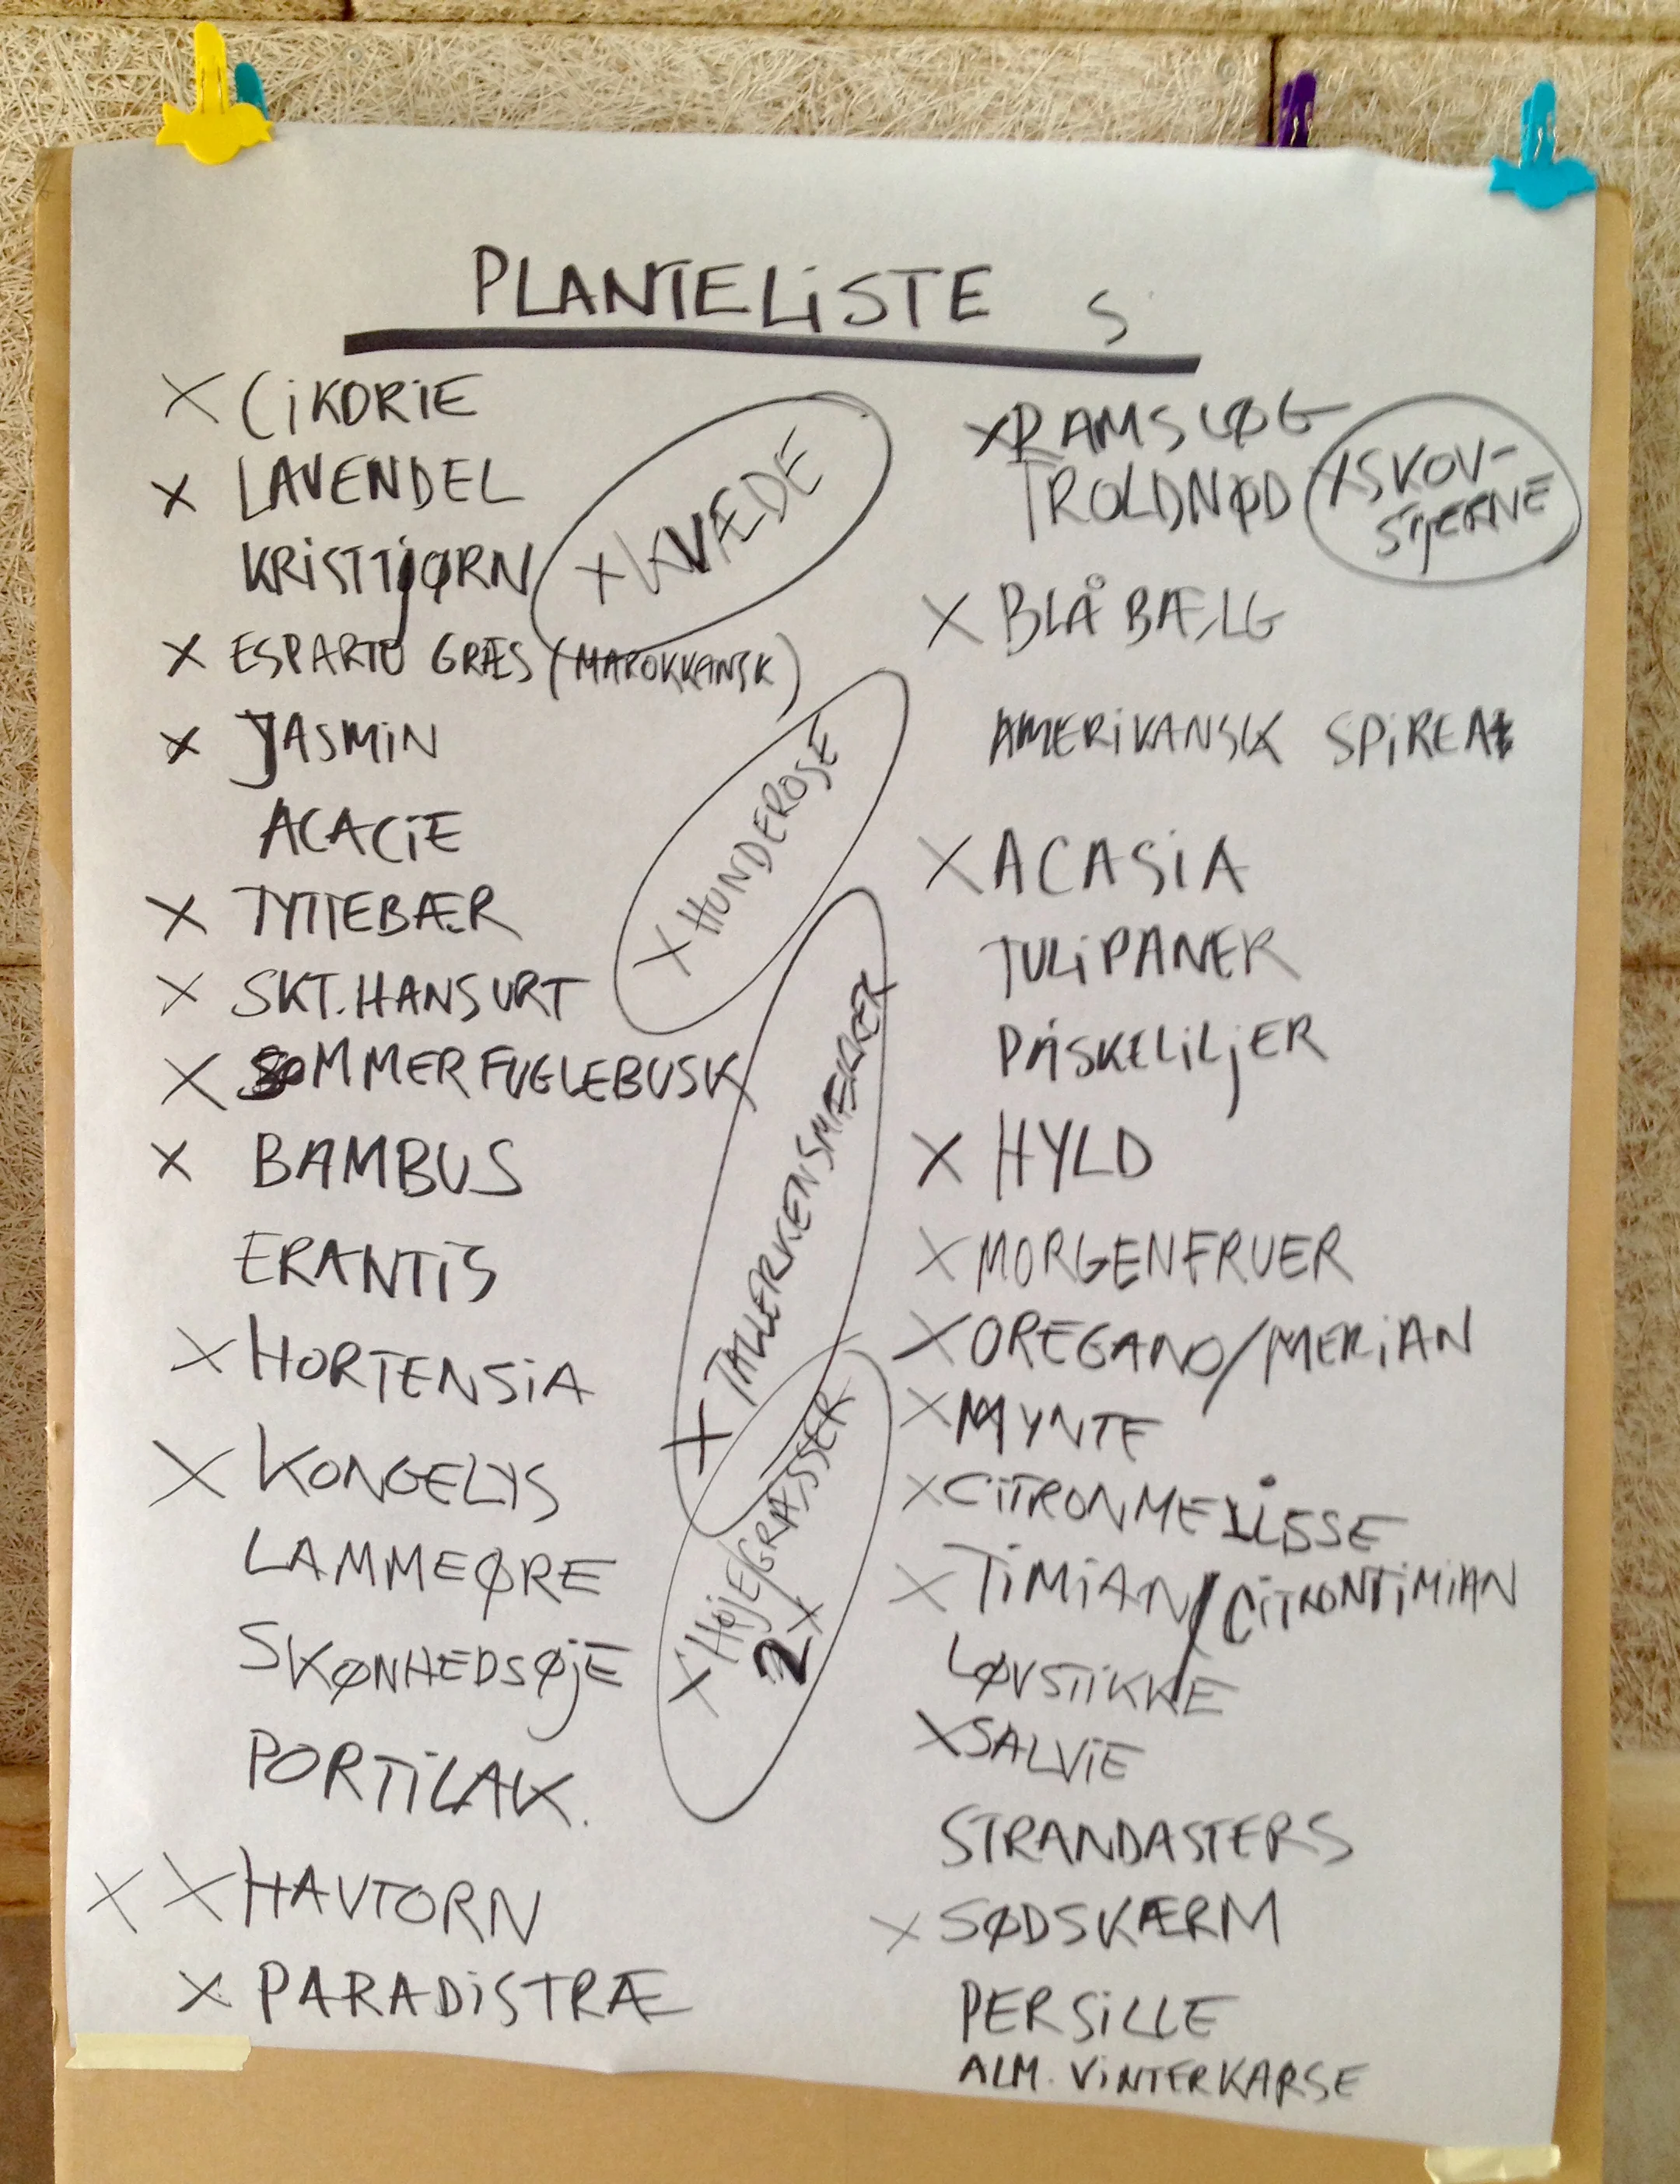 PLANTELiSTE S
X CiKORiE
X LAVENDEL
KRiSTTjØRN
X ESPARTO GRÆS (MAROKKANSK)
X JASMiN
ACACiE
X TYTTEBÆR
X SKT. HANSURT
X SOMMERFUGLEBUSK
X BAMBUS
ERANTiS
X HORTENSiA
X KONGELYS
LAMMEØRE
SKØNHEDSØjE
PORTiLAK.
X X HAVTORN
X PARADiSTRÆ
X KVÆDE
X HUNDEROSE
X TALLERKENSMÆKKER
X HØjE GRÆSSER
2X
X RAMSLØG
TROLDNØD
X SKOV-
STJERNE
X BLÅBÆLG
AMERiKANSK SPiREA
X ACASiA
TULiPANER
PÅSKELiLjER
X HYLD
X MORGENFRUER
X OREGANO/MERiAN
X MYNTE
X CiTRONMELiSSE
X TiMiAN/CiTRONTiMiAN
LØVSTiKKE
X SALViE
STRANDASTERS
X SØDSKÆRM
PERSiLLE
ALM. ViNTERKARSE